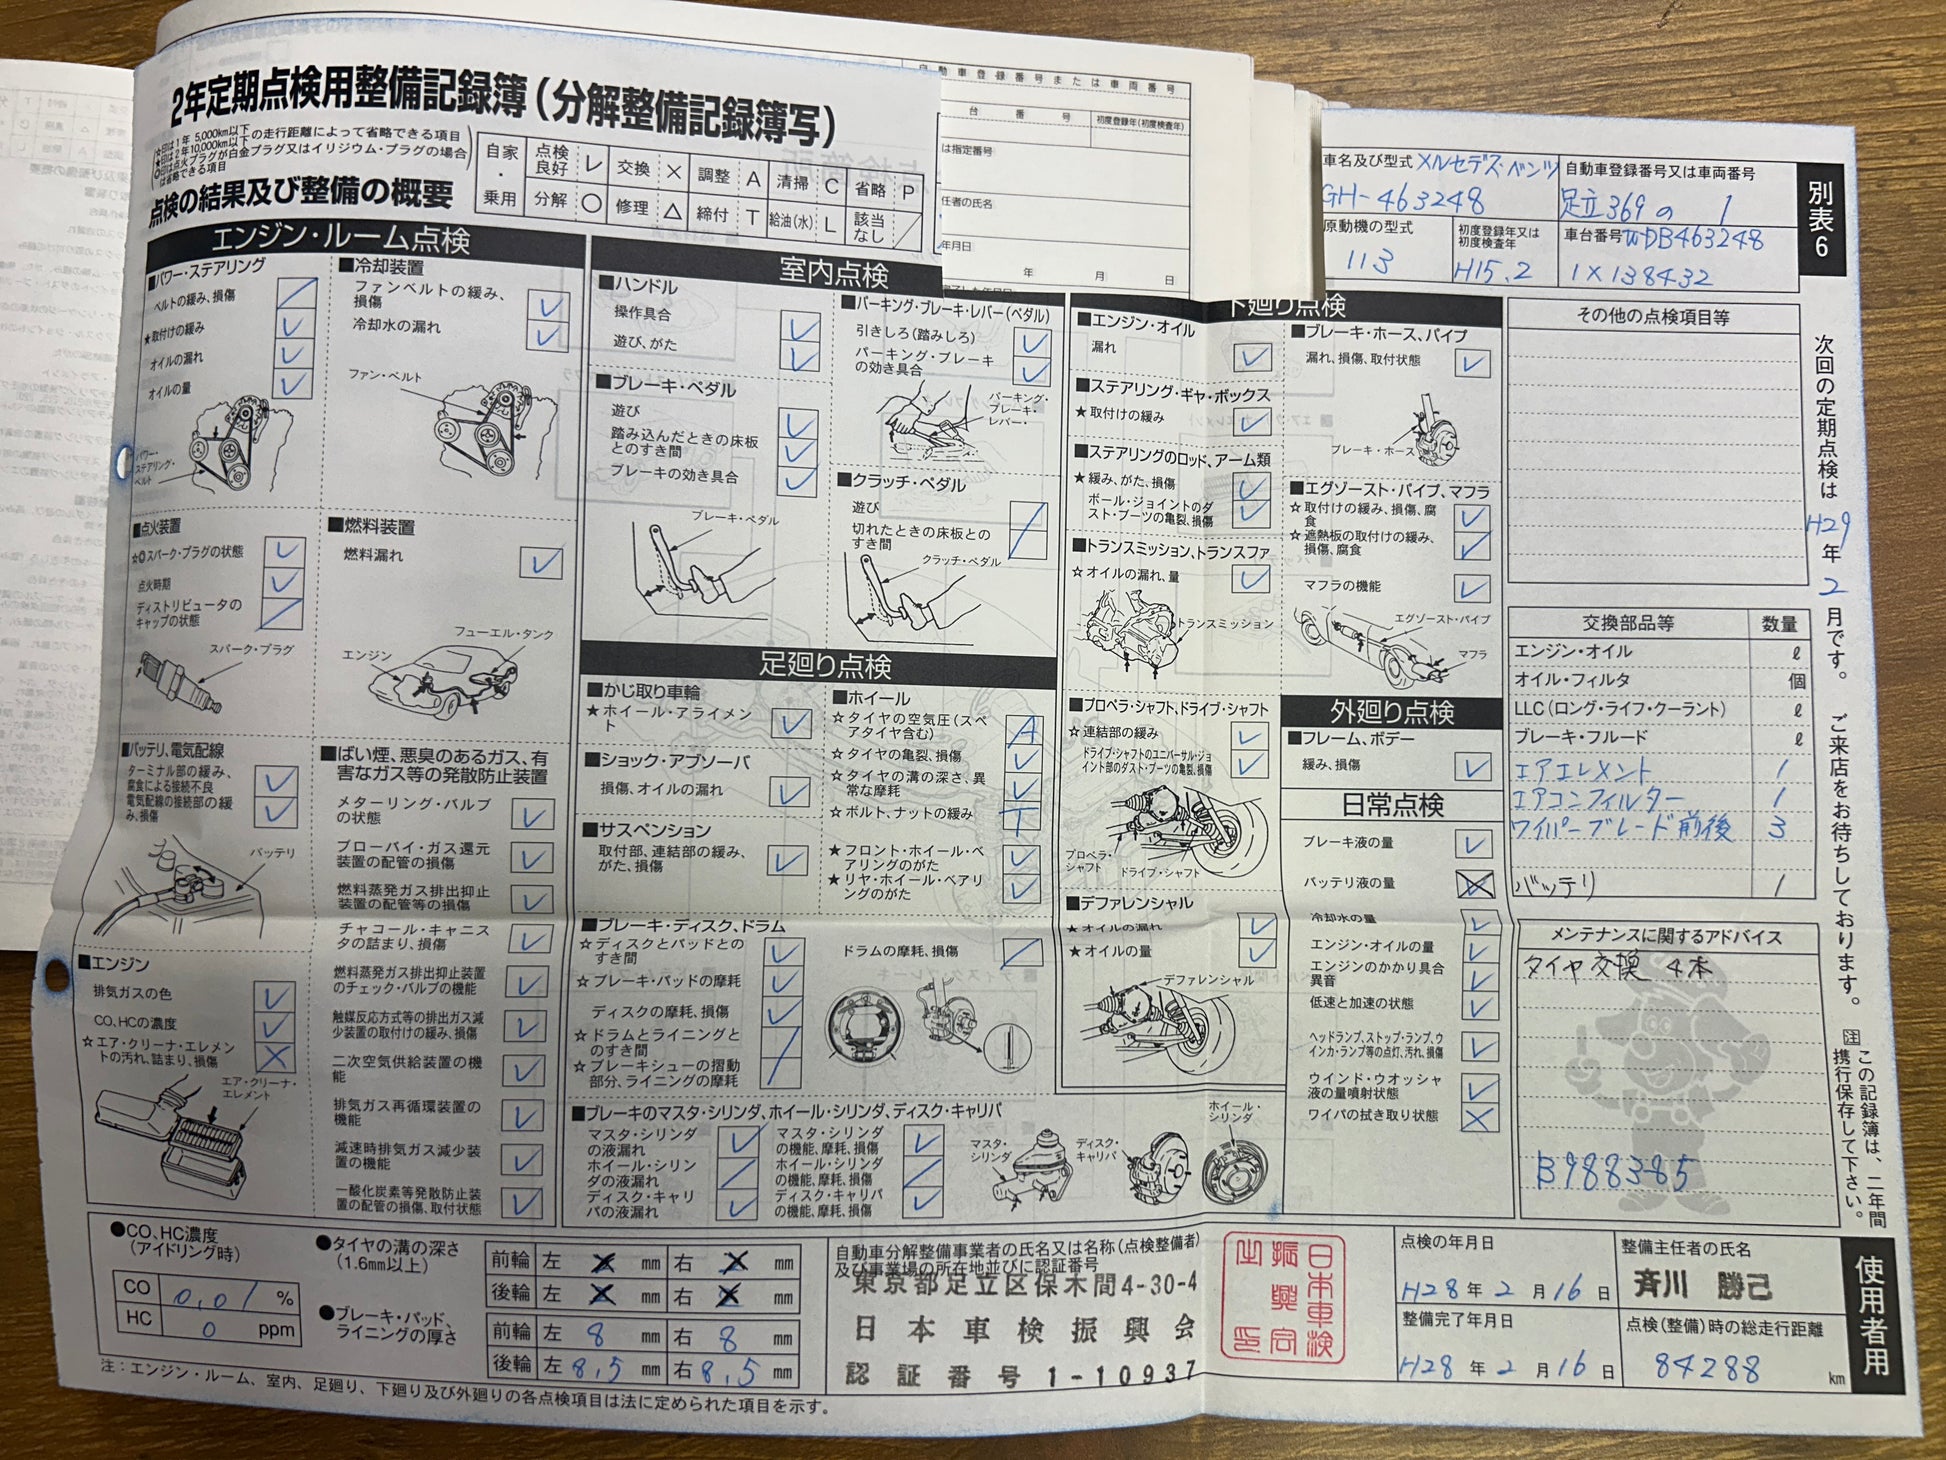 2年定期点検用整備記録簿(分解整備記録簿写)
☆印は1年 5,000km以下の走行距離によって省略できる項目
★印は2年 10,000km以下
◎印は点火プラグが白金プラグ又はイリジウム・プラグの場合は省略できる項目
点検の結果及び整備の概要
自家・乗用
点検良好 レ 交換 × 調整 A 清掃 C 省略 P
分解 ○ 修理 △ 締付 T 給油(水) L 該当なし /
自動車登録番号または車両番号
台番号 初度登録年(初度検査年)
は指定番号
任者の氏名
年月日
年 月 日
車名及び型式 メルセデス・ベンツ
GH-463248
自動車登録番号又は車両番号
足立369の 1
原動機の型式
113
初度登録年又は初度検査年
H15.2
車台番号 WDB463248
1X138432
別表6
エンジン・ルーム点検
■パワー・ステアリング
ベルトの緩み、損傷 /
★取付けの緩み レ
オイルの漏れ レ
オイルの量 レ
パワー・ステアリング・ベルト
■冷却装置
ファンベルトの緩み、損傷 レ
冷却水の漏れ レ
ファン・ベルト
■点火装置
☆◎スパーク・プラグの状態 レ
点火時期 レ
ディストリビュータのキャップの状態 /
スパーク・プラグ
■燃料装置
燃料漏れ レ
フューエル・タンク
エンジン
■バッテリ、電気配線
ターミナル部の緩み、腐食による接続不良 レ
電気配線の接続部の緩み、損傷 レ
バッテリ
■ばい煙、悪臭のあるガス、有害なガス等の発散防止装置
メターリング・バルブの状態 レ
ブローバイ・ガス還元装置の配管の損傷 レ
燃料蒸発ガス排出抑止装置の配管等の損傷 レ
チャコール・キャニスタの詰まり、損傷 レ
燃料蒸発ガス排出抑止装置のチェック・バルブの機能 レ
触媒反応方式等の排出ガス減少装置の取付けの緩み、損傷 レ
二次空気供給装置の機能 レ
排気ガス再循環装置の機能 レ
減速時排気ガス減少装置の機能 レ
一酸化炭素等発散防止装置の配管の損傷、取付状態 レ
■エンジン
排気ガスの色 レ
CO、HCの濃度 レ
☆エア・クリーナ・エレメントの汚れ、詰まり、損傷 ×
エア・クリーナ・エレメント
室内点検
■ハンドル
操作具合 レ
遊び、がた レ
■ブレーキ・ペダル
遊び レ
踏み込んだときの床板とのすき間 レ
ブレーキの効き具合 レ
ブレーキ・ペダル
■パーキング・ブレーキ・レバー(ペダル)
引きしろ(踏みしろ) レ
パーキング・ブレーキの効き具合 レ
パーキング・ブレーキ・レバー・
■クラッチ・ペダル
遊び
切れたときの床板とのすき間 /
クラッチ・ペダル
足廻り点検
■かじ取り車輪
★ホイール・アライメント レ
■ショック・アブソーバ
損傷、オイルの漏れ レ
■サスペンション
取付部、連結部の緩み、がた、損傷 レ
■ホイール
☆タイヤの空気圧(スペアタイヤ含む) A
☆タイヤの亀裂、損傷 レ
☆タイヤの溝の深さ、異常な摩耗 レ
☆ボルト、ナットの緩み T
★フロント・ホイール・ベアリングのがた レ
★リヤ・ホイール・ベアリングのがた レ
■ブレーキ・ディスク、ドラム
☆ディスクとパッドとのすき間 レ
☆ブレーキ・パッドの摩耗 レ
ディスクの摩耗、損傷 レ
☆ドラムとライニングとのすき間
☆ブレーキシューの摺動部分、ライニングの摩耗 /
ドラムの摩耗、損傷 /
■ブレーキのマスタ・シリンダ、ホイール・シリンダ、ディスク・キャリパ
マスタ・シリンダの液漏れ レ
ホイール・シリンダの液漏れ /
ディスク・キャリパの液漏れ レ
マスタ・シリンダの機能、摩耗、損傷 レ
ホイール・シリンダの機能、摩耗、損傷 /
ディスク・キャリパの機能、摩耗、損傷 レ
マスタ・シリンダ
ディスク・キャリパ
ホイール・シリンダ
下廻り点検
■エンジン・オイル
漏れ レ
■ステアリング・ギヤ・ボックス
★取付けの緩み レ
■ステアリングのロッド、アーム類
★緩み、がた、損傷 レ
ボール・ジョイントのダスト・ブーツの亀裂、損傷 レ
■トランスミッション、トランスファ
☆オイルの漏れ、量 レ
トランスミッション
■プロペラ・シャフト、ドライブ・シャフト
☆連結部の緩み レ
ドライブ・シャフトのユニバーサル・ジョイント部のダスト・ブーツの亀裂、損傷 レ
プロペラ・シャフト
ドライブ・シャフト
■デファレンシャル
★オイルの漏れ レ
★オイルの量 レ
デファレンシャル
■ブレーキ・ホース、パイプ
漏れ、損傷、取付状態 レ
ブレーキ・ホース
■エグゾースト・パイプ、マフラ
☆取付けの緩み、損傷、腐食 レ
☆遮熱板の取付けの緩み、損傷、腐食 レ
マフラの機能 レ
エグゾースト・パイプ
マフラ
外廻り点検
■フレーム、ボデー
緩み、損傷 レ
日常点検
ブレーキ液の量 レ
バッテリ液の量 ×
冷却水の量 レ
エンジン・オイルの量 レ
エンジンのかかり具合異音 レ
低速と加速の状態 レ
ヘッドランプ、ストップ・ランプ、ウインカ・ランプ等の点灯、汚れ、損傷 レ
ウインド・ウオッシャ液の量噴射状態 レ
ワイパの拭き取り状態 ×
その他の点検項目等
交換部品等 数量
エンジン・オイル ℓ
オイル・フィルタ 個
LLC(ロング・ライフ・クーラント) ℓ
ブレーキ・フルード ℓ
エアエレメント 1
エアコンフィルター 1
ワイパーブレード前後 3
バッテリ 1
メンテナンスに関するアドバイス
タイヤ交換 4本
B988385
次回の定期点検は H29 年 2 月です。 ご来店をお待ちしております。
注 この記録簿は、二年間携行保存して下さい。
使用者用
●CO、HC濃度(アイドリング時)
CO 0.01 %
HC 0 ppm
●タイヤの溝の深さ(1.6mm以上)
前輪 左 × mm 右 × mm
後輪 左 × mm 右 × mm
●ブレーキ・パッド、ライニングの厚さ
前輪 左 8 mm 右 8 mm
後輪 左 8.5 mm 右 8.5 mm
自動車分解整備事業者の氏名又は名称(点検整備者)及び事業場の所在地並びに認証番号
東京都足立区保木間4-30-4
日本車検振興会
認証番号 1-10937
点検の年月日
H28 年 2 月 16 日
整備完了年月日
H28 年 2 月 16 日
整備主任者の氏名
斉川 勝己
点検(整備)時の総走行距離
84288 km
注:エンジン・ルーム、室内、足廻り、下廻り及び外廻りの各点検項目は法に定められた項目を示す。